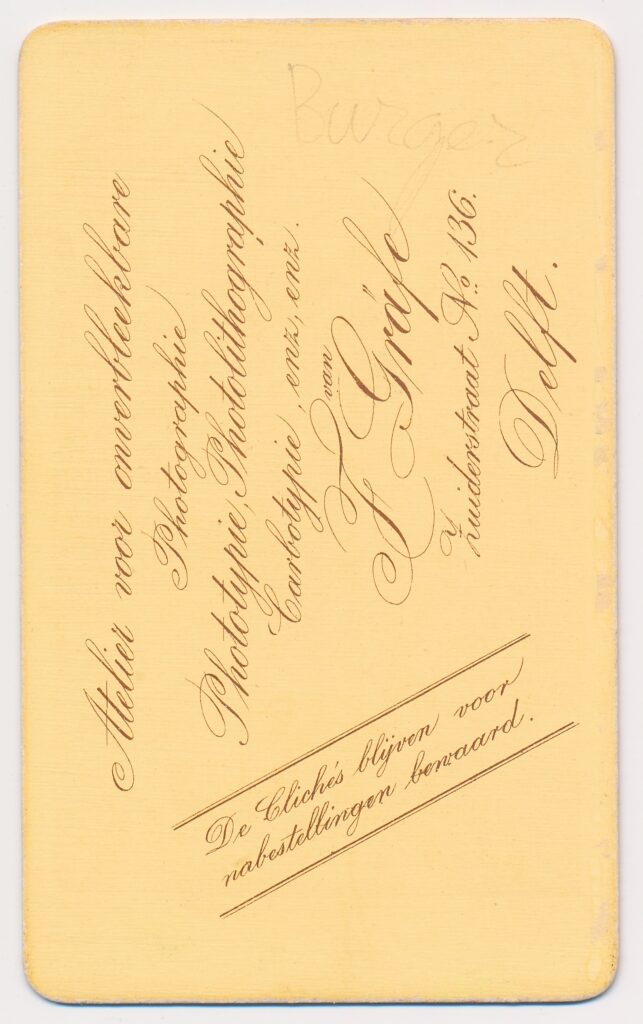 Burger
Atelier voor onverbleekbare
Photographie
Phototypie, Photolithographie
Carbotypie, enz, enz.
van
F. Gräfe
Zuiderstraat No. 136.
Delft.
De Clichés blijven voor
nabestellingen bewaard.